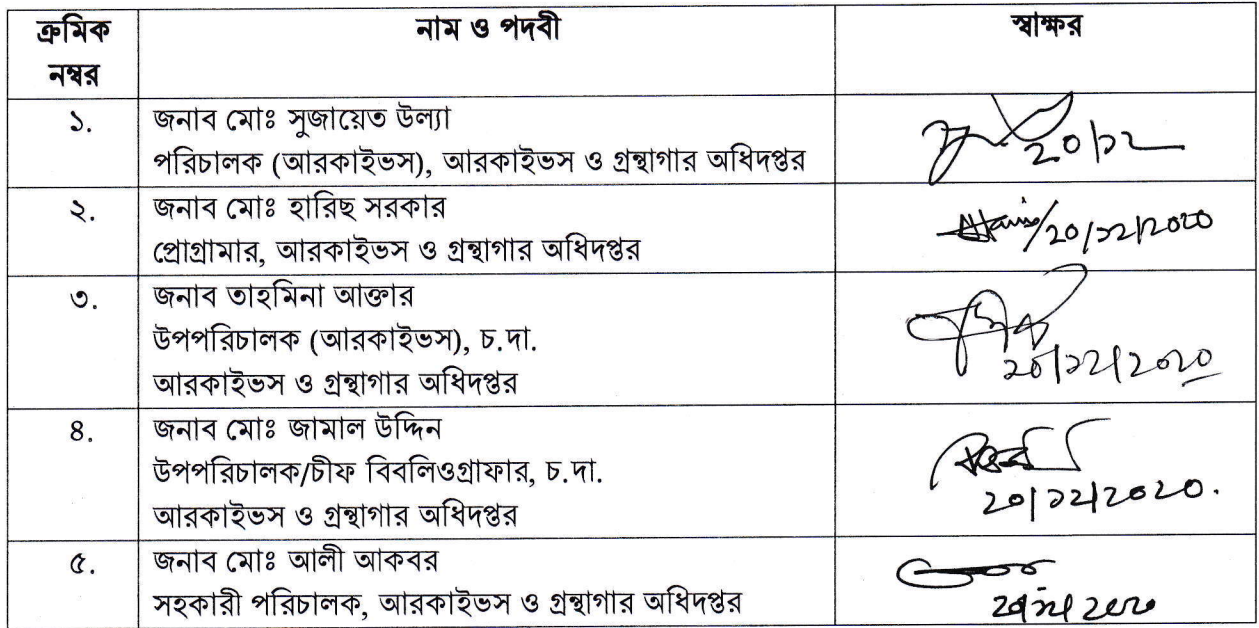 ক্রমিক নম্বর নাম ও পদবী স্বাক্ষর
১. জনাব মোঃ সুজায়েত উল্যা
পরিচালক (আরকাইভস), আরকাইভস ও গ্রন্থাগার অধিদপ্তর
২০/১২
২. জনাব মোঃ হারিছ সরকার
প্রোগ্রামার, আরকাইভস ও গ্রন্থাগার অধিদপ্তর
২০/১২/২০২০
৩. জনাব তাহমিনা আক্তার
উপপরিচালক (আরকাইভস), চ.দা.
আরকাইভস ও গ্রন্থাগার অধিদপ্তর
২০/১২/২০২০
৪. জনাব মোঃ জামাল উদ্দিন
উপপরিচালক/চীফ বিবলিওগ্রাফার, চ.দা.
আরকাইভস ও গ্রন্থাগার অধিদপ্তর
২০/১২/২০২০.
৫. জনাব মোঃ আলী আকবর
সহকারী পরিচালক, আরকাইভস ও গ্রন্থাগার অধিদপ্তর